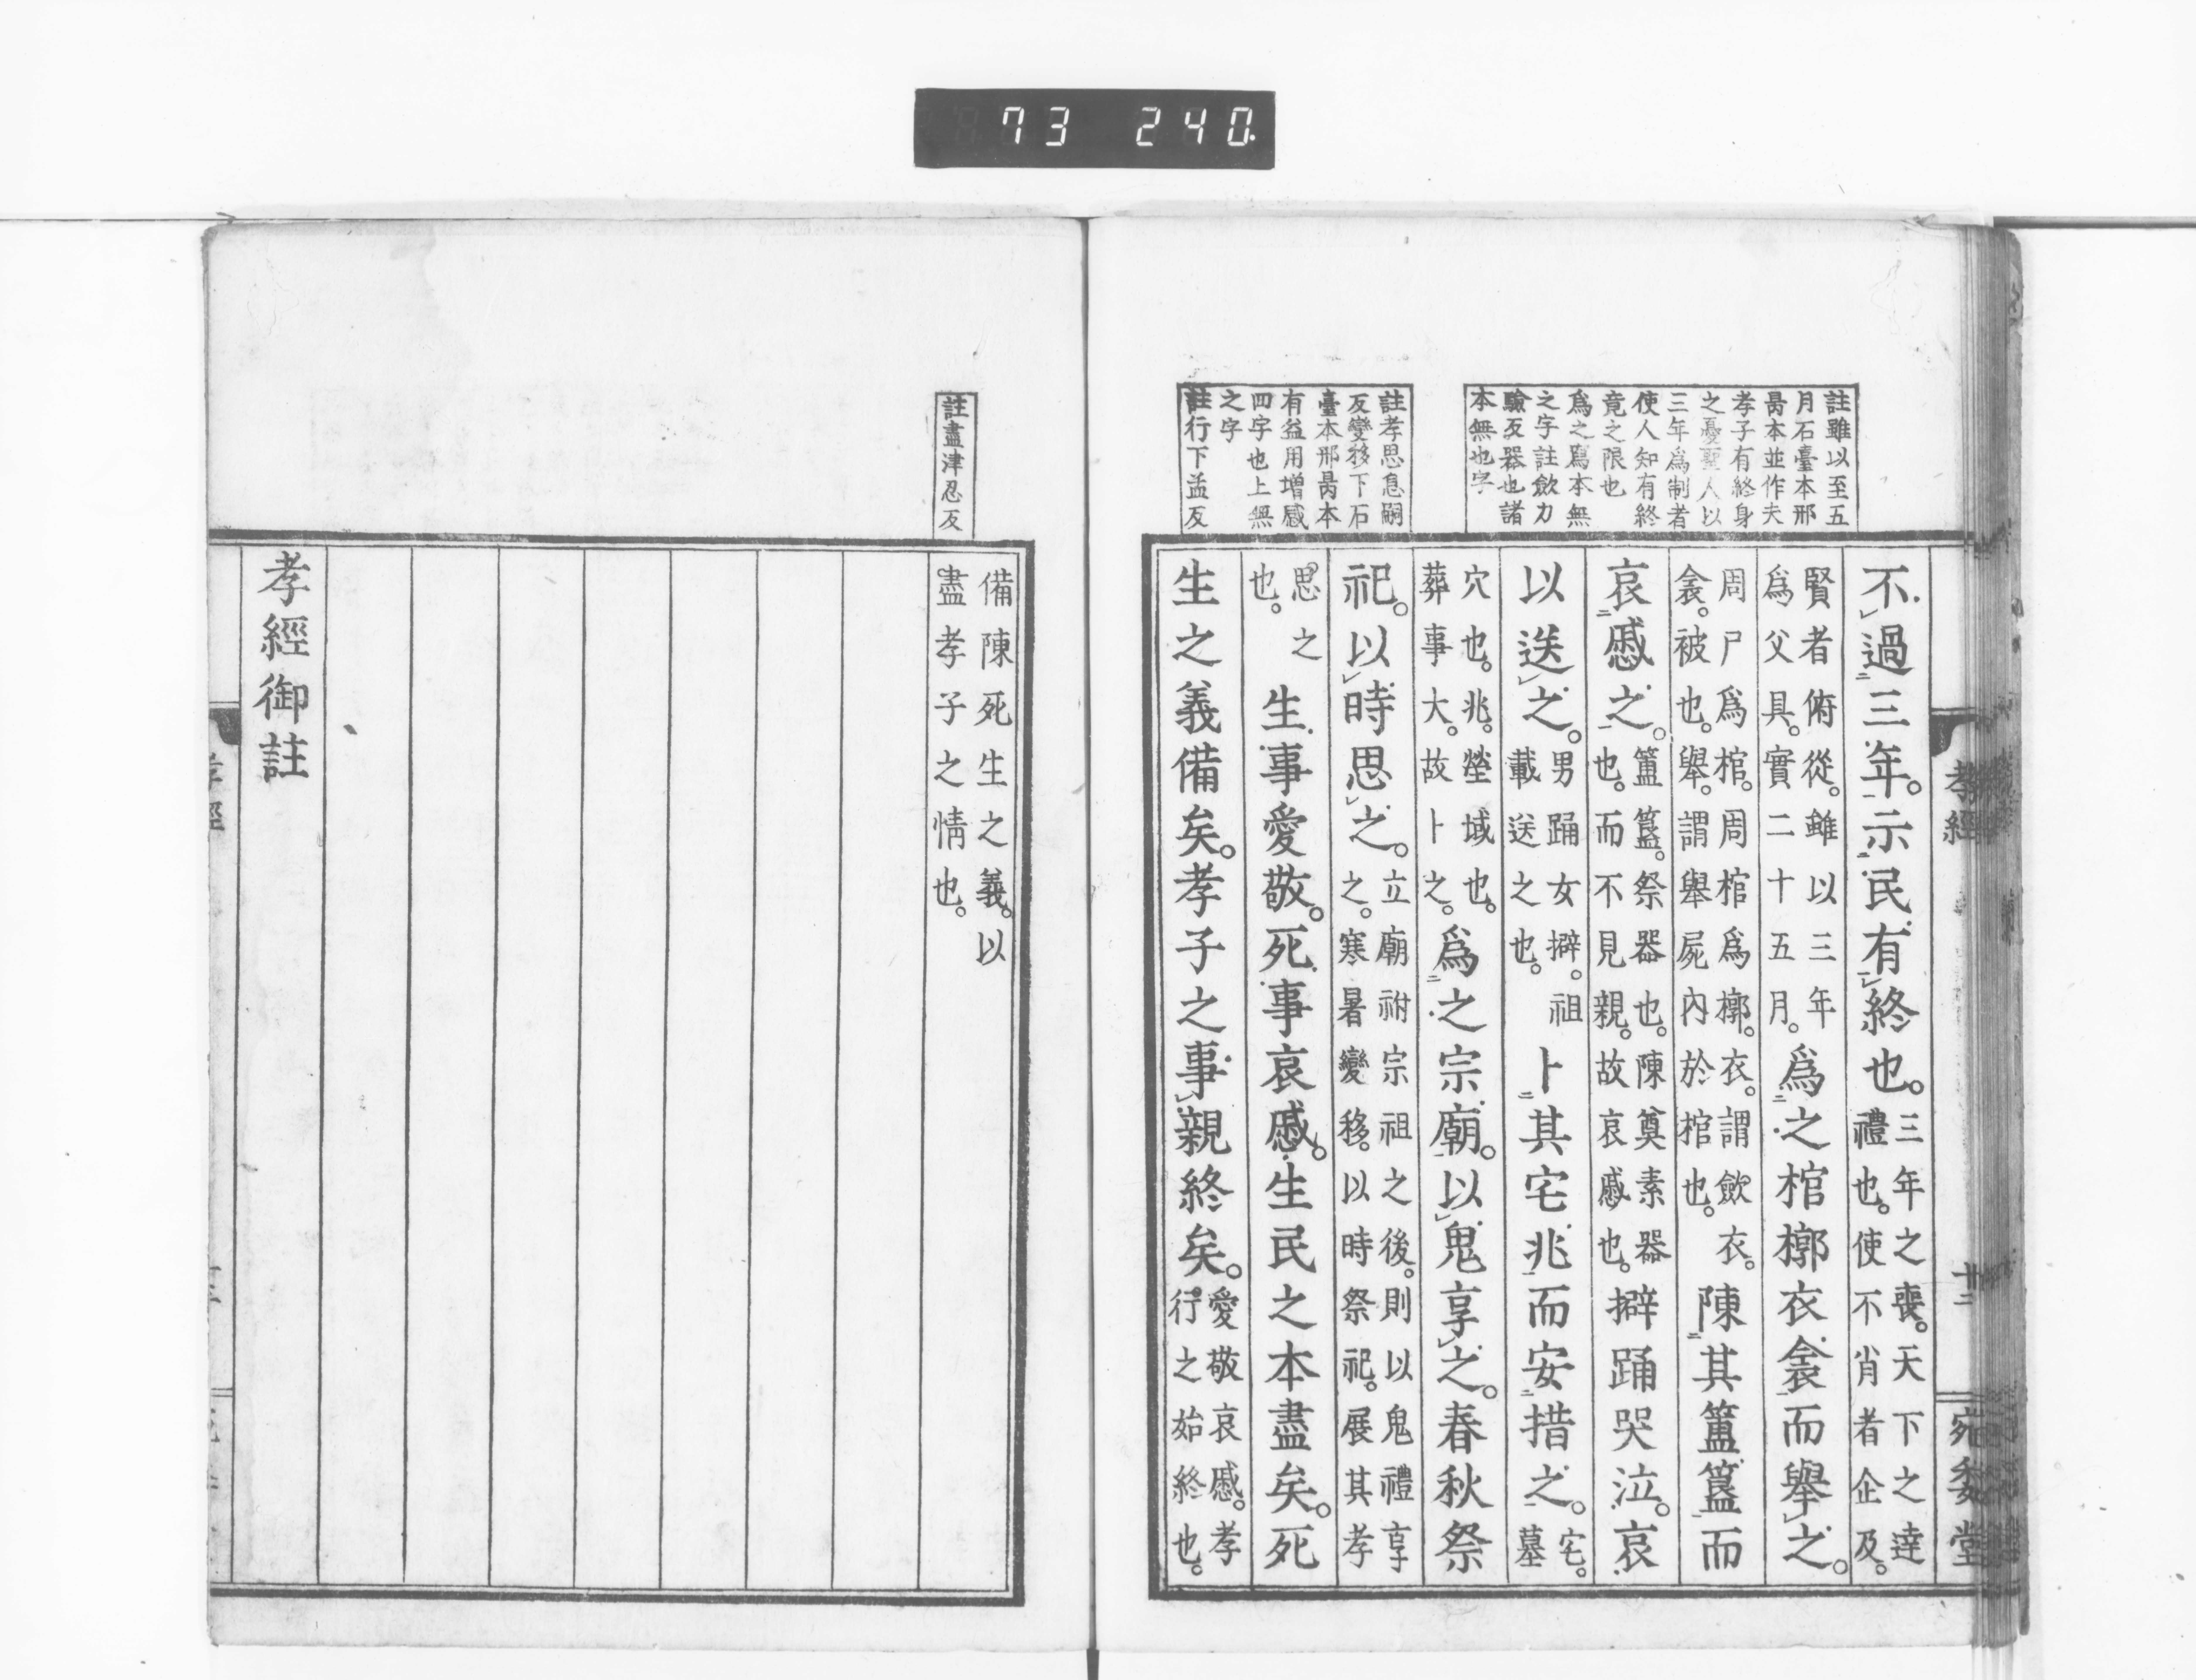 73 240.
註雖以至五
月石臺本邢
昺本並作夫
孝子有終身
之憂聖人以
三年爲制者
使人知有終
竟之限也
爲之爲本無
之字註歛力
驗反器也諸
本無也字
註孝思息嗣
反變移下石
臺本邢昺本
有益用增感
四字也上無
之字
註行下孟反
孝經
廿二
宛委堂
不過三年。示民有終也。三年之喪。天下之達禮也。使不肖者企及。
賢者俯從。雖以三年爲父具。實二十五月。爲之棺槨衣衾而擧之。
周尸爲棺。周棺爲槨。衣。謂歛衣。衾。被也。擧。謂擧屍內於棺也。陳其簠簋而
哀慼之。簠簋。祭器也。陳奠素器也。而不見親。故哀慼也。擗踊哭泣。哀
以送之。男踊女擗。祖載送之也。卜其宅兆而安措之。宅。墓
穴也。兆。塋域也。葬事大。故卜之。爲之宗廟。以鬼享之。春秋祭
祀。以時思之。立廟祔宗祖之後。則以鬼禮享之。寒暑變移。以時祭祀。展其孝
思之也。生事愛敬。死事哀慼。生民之本盡矣。死
生之義備矣。孝子之事親終矣。愛敬哀慼。孝行之始終也。
註盡津忍反
備陳死生之義。以盡孝子之情也。
孝經御註